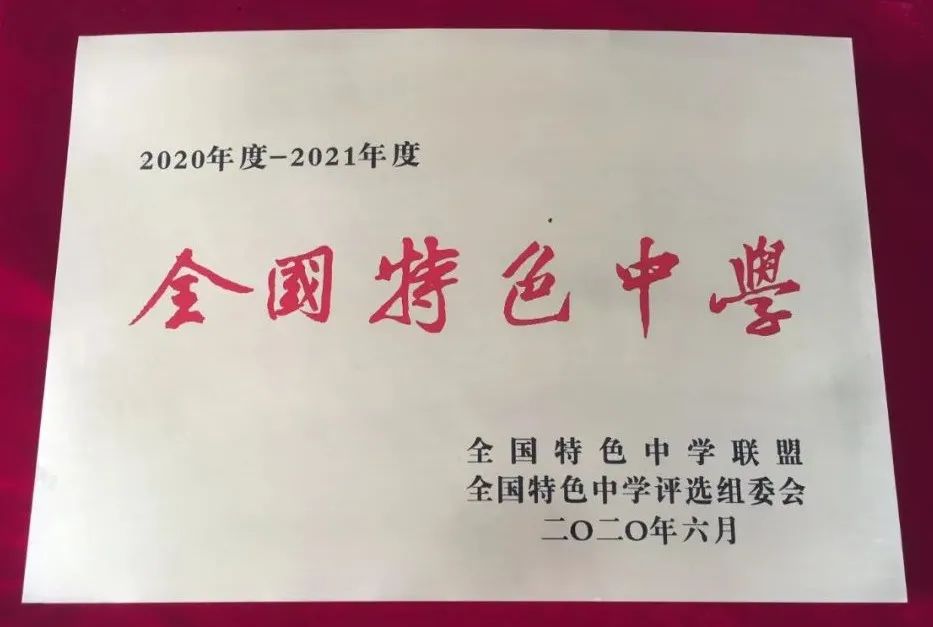 2020年度-2021年度
全國特色中學
全国特色中学联盟
全国特色中学评选组委会
二〇二〇年六月